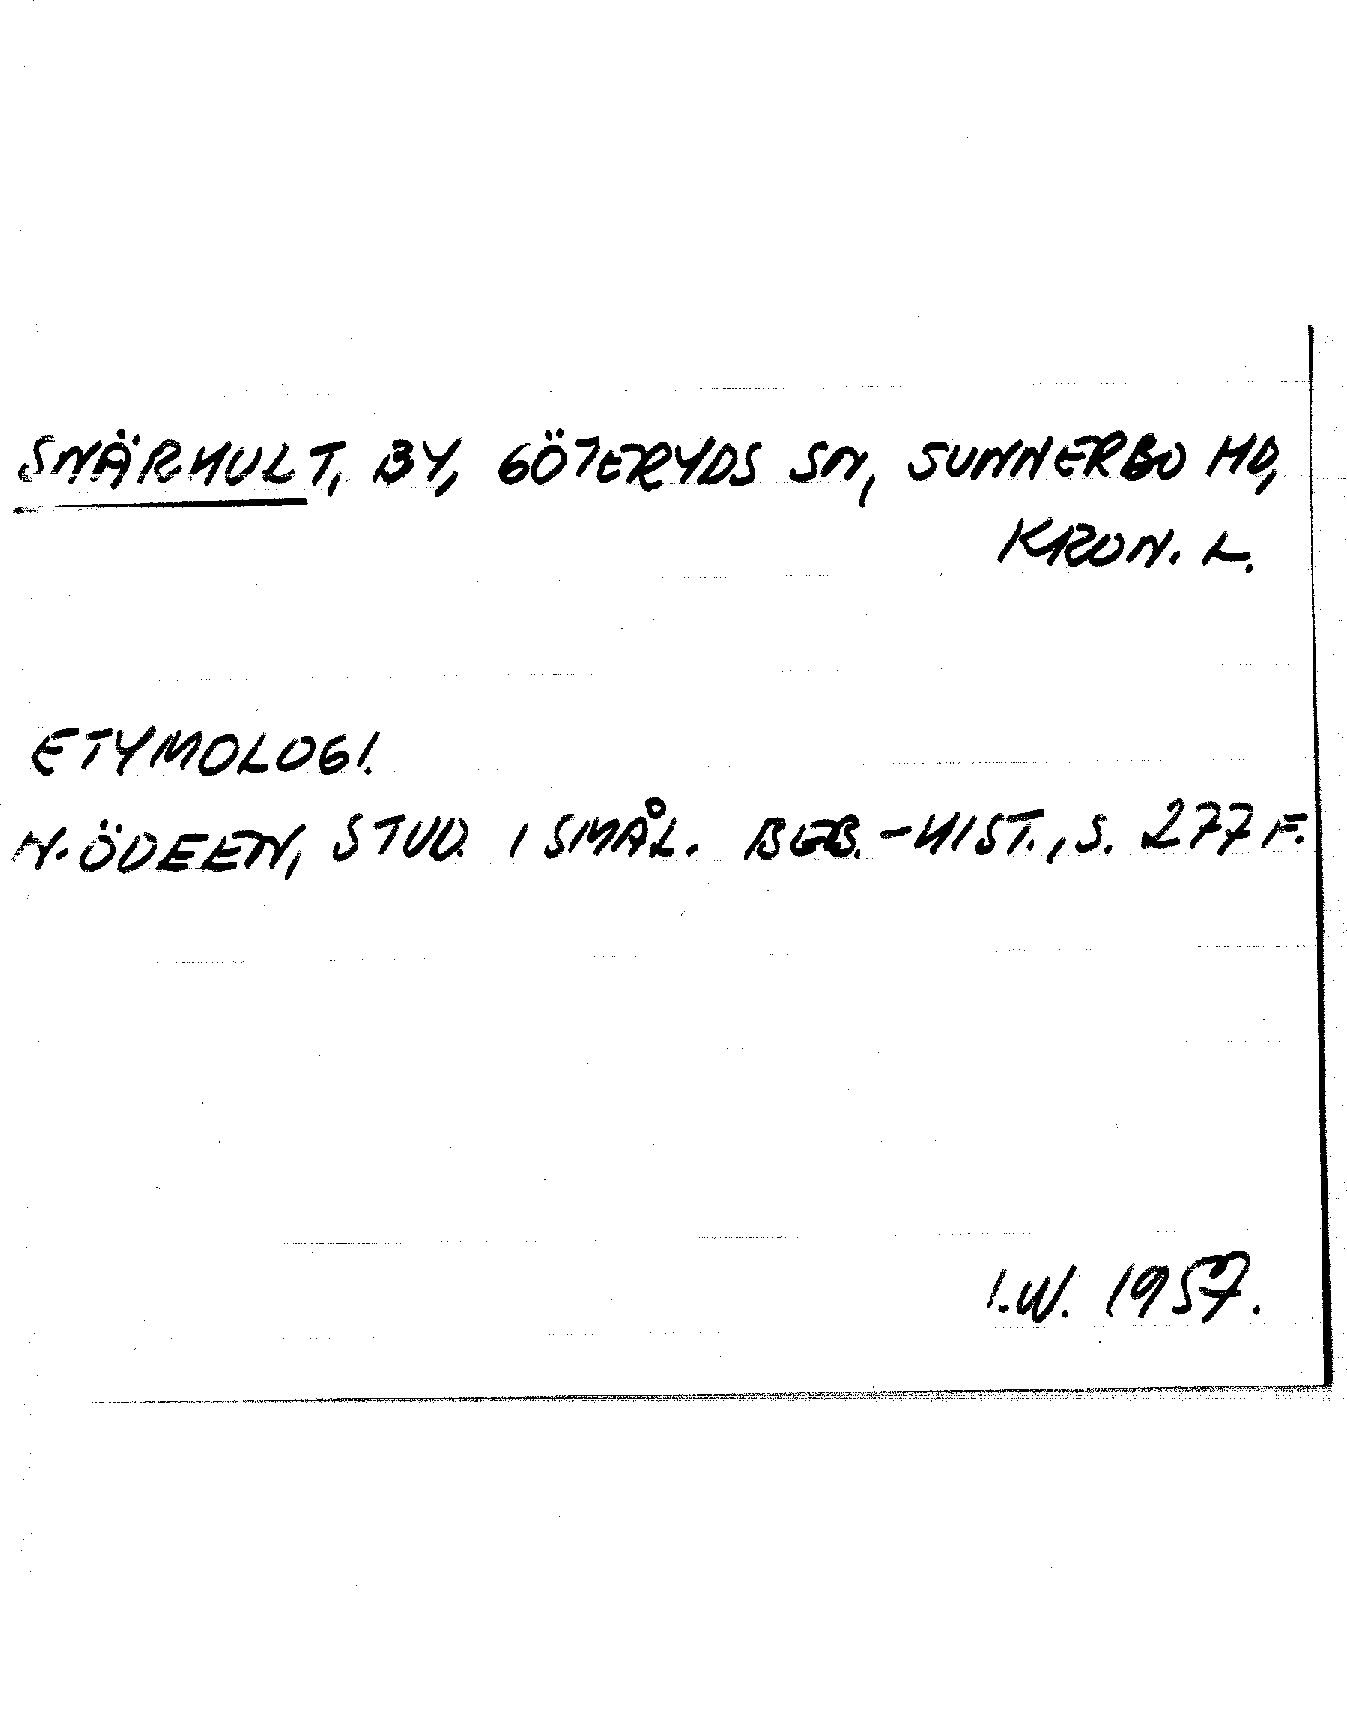 SNÄRHULT, BY, GÖTERYDS SN, SUNNERBO HD,
KRON. L.
ETYMOLOGI.
N. ÖDEEN, STUD. I SMÅL. BEB.-HIST., S. 277 F.
I.W. 1957.